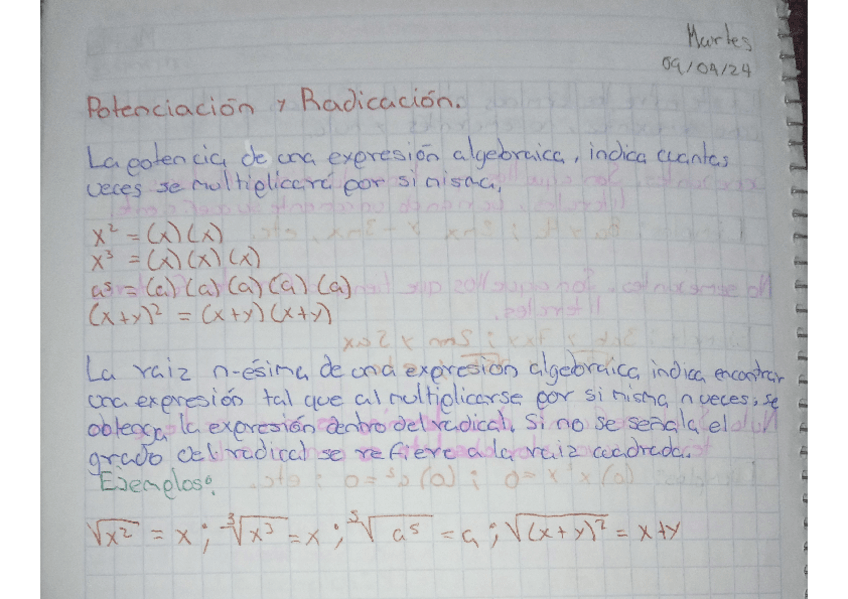 Martes
09/04/24
Potenciación y Radicación.
La potencia de una expresión algebraica, indica cuantas
veces se multiplicará por si misma.
x² = (x)(x)
x³ = (x)(x)(x)
a⁵ = (a)(a)(a)(a)(a)
(x+y)² = (x+y)(x+y)
La raiz n-ésima de una expresión algebraica indica encontrar
una expresión tal que al multiplicarse por si misma n veces, se
obtenga la expresión dentro del radical. Si no se señala el
grado del radical se refiere a la raiz cuadrada.
Ejemplos:
√x² = x ; ³√x³ = x ; ⁵√a⁵ = a ; √(x+y)² = x+y